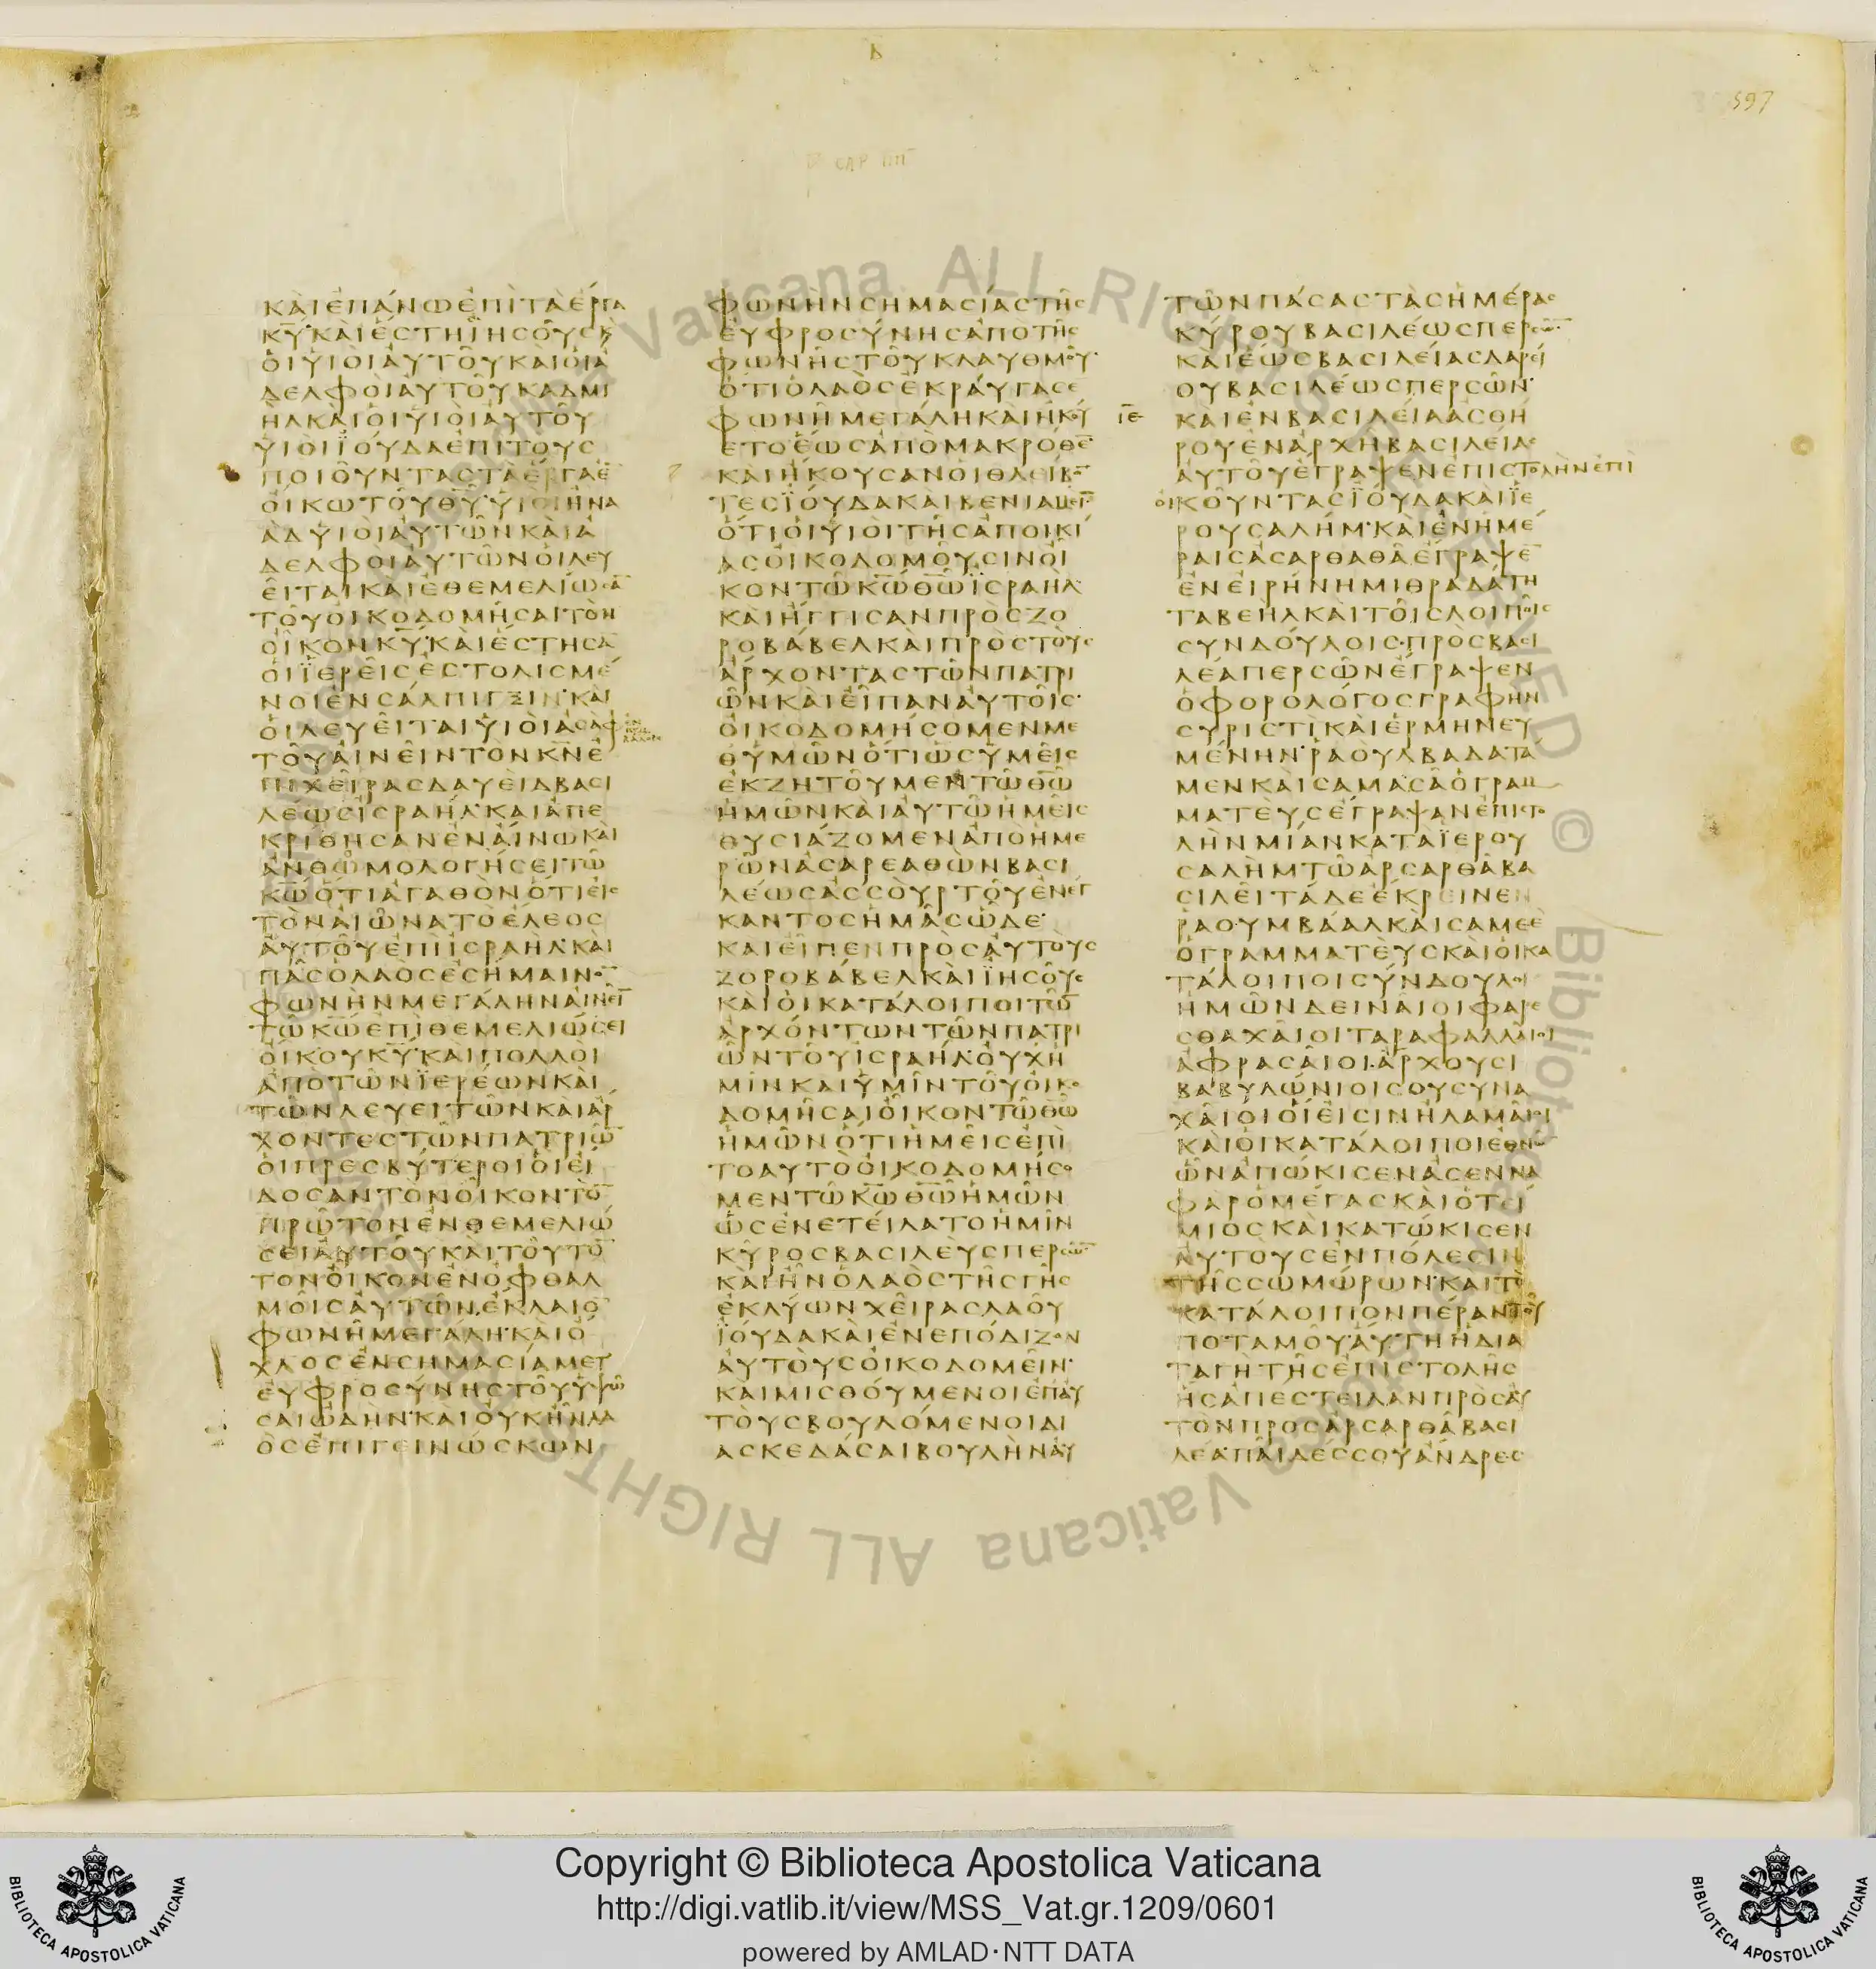 Β
597
CAP IIII
ΚΑΙΕΠΑΝΩΕΠΙΤΑΕΡΓΑ
ΚΥ ΚΑΙΕΣΤΗΙΗΣΟΥΣΚ
ΟΙΥΙΟΙΑΥΤΟΥΚΑΙΟΙΑ
ΔΕΛΦΟΙΑΥΤΟΥΚΑΔΜΙ
ΗΛΚΑΙΟΙΥΙΟΙΑΥΤΟΥ
ΥΙΟΙΪΟΥΔΑΕΠΙΤΟΥΣ
ΠΟΙΟΥΝΤΑΣΤΑΕΡΓΑΕ̄
ΟΙΚΩΤΟΥΘΥ ΥΙΟΙΗΝΑ
ΑΔΥΙΟΙΑΥΤΩΝΚΑΙΑ
ΔΕΛΦΟΙΑΥΤΩΝΟΙΛΕΥ
ΕΙΤΑΙΚΑΙΕΘΕΜΕΛΙΩΣᾹ
ΤΟΥΟΙΚΟΔΟΜΗΣΑΙΤΟΝ
ΟΙΚΟΝΚΥ ΚΑΙΕΣΤΗΣᾹ
ΟΙΪΕΡΕΙΣΕΣΤΟΛΙΣΜΕ
ΝΟΙΕΝΣΑΛΠΙΓΞΙΝ ΚΑΙ
ΟΙΛΕΥΕΙΤΑΙΥΙΟΙΑΣΑΦ
ΤΟΥΑΙΝΕΙΝΤΟΝΚΝΕ
ΠΙΧΕΙΡΑΣΔΑΥΕΙΔΒΑΣΙ
ΛΕΩΣΙΣΡΑΗΛ ΚΑΙΑΠΕ
ΚΡΙΘΗΣΑΝΕΝΑΙΝΩΚΑΙ
ΑΝΘΩΜΟΛΟΓΗΣΕΙΤΩ
ΚΩΟΤΙΑΓΑΘΟΝΟΤΙΕΙΣ
ΤΟΝΑΙΩΝΑΤΟΕΛΕΟΣ
ΑΥΤΟΥΕΠΙΙΣΡΑΗΛ ΚΑΙ
ΠΑΣΟΛΑΟΣΕΣΗΜΑΙΝΟ̄
ΦΩΝΗΝΜΕΓΑΛΗΝΑΙΝΕῙ
ΤΩΚΩΕΠΙΘΕΜΕΛΙΩΣΕΙ
ΟΙΚΟΥΚΥ ΚΑΙΠΟΛΛΟΙ
ΑΠΟΤΩΝΪΕΡΕΩΝΚΑΙ
ΤΩΝΛΕΥΕΙΤΩΝΚΑΙΑΡ
ΧΟΝΤΕΣΤΩΝΠΑΤΡΙΩ̄
ΟΙΠΡΕΣΒΥΤΕΡΟΙΟΙΕΙ
ΔΟΣΑΝΤΟΝΟΙΚΟΝΤΟ̄
ΠΡΩΤΟΝΕΝΘΕΜΕΛΙΩ
ΣΕΙΑΥΤΟΥΚΑΙΤΟΥΤΟ̄
ΤΟΝΟΙΚΟΝΕΝΟΦΘΑΛ
ΜΟΙΣΑΥΤΩΝ ΕΚΛΑΙΟ̄
ΦΩΝΗΜΕΓΑΛΗ ΚΑΙΟ
ΧΛΟΣΕΝΣΗΜΑΣΙΑΜΕΤ
ΕΥΦΡΟΣΥΝΗΣΤΟΥΥΨΩ
ΣΑΙΩΔΗΝ ΚΑΙΟΥΚΗΝΛΑ
ΟΣΕΠΙΓΕΙΝΩΣΚΩΝ
ΦΩΝΗΝΣΗΜΑΣΙΑΣΤΗΣ
ΕΥΦΡΟΣΥΝΗΣΑΠΟΤΗΣ
ΦΩΝΗΣΤΟΥΚΛΑΥΘΜΟΥ
ΟΤΙΟΛΑΟΣΕΚΡΑΥΓΑΣΕ
ΦΩΝΗΜΕΓΑΛΗΚΑΙΗΚΟΥ
ΕΤΟΕΩΣΑΠΟΜΑΚΡΟΘΕ̄
ΚΑΙΗΚΟΥΣΑΝΟΙΘΛΕΙΒΟ̄
ΤΕΣΪΟΥΔΑΚΑΙΒΕΝΙΑΜΕῙ
ΟΤΙΟΙΥΙΟΙΤΗΣΑΠΟΙΚΙ
ΑΣΟΙΚΟΔΟΜΟΥΣΙΝΟΙ
ΚΟΝΤΩΚΩΘΩΪΣΡΑΗΛ
ΚΑΙΗΓΓΙΣΑΝΠΡΟΣΖΟ
ΡΟΒΑΒΕΛΚΑΙΠΡΟΣΤΟΥΣ
ΑΡΧΟΝΤΑΣΤΩΝΠΑΤΡΙ
ΩΝΚΑΙΕΙΠΑΝΑΥΤΟΙΣ
ΟΙΚΟΔΟΜΗΣΟΜΕΝΜΕ
ΘΥΜΩΝΟΤΙΩΣΥΜΕΙΣ
ΕΚΖΗΤΟΥΜΕΝΤΩΘΩ
ΗΜΩΝΚΑΙΑΥΤΩΗΜΕΙΣ
ΘΥΣΙΑΖΟΜΕΝΑΠΟΗΜΕ
ΡΩΝΑΣΑΡΕΑΘΩΝΒΑΣΙ
ΛΕΩΣΑΣΣΟΥΡΤΟΥΕΝΕΓ
ΚΑΝΤΟΣΗΜΑΣΩΔΕ
ΚΑΙΕΙΠΕΝΠΡΟΣΑΥΤΟΥΣ
ΖΟΡΟΒΑΒΕΛΚΑΙΪΗΣΟΥΣ
ΚΑΙΟΙΚΑΤΑΛΟΙΠΟΙΤΩ̄
ΑΡΧΟΝΤΩΝΤΩΝΠΑΤΡΙ
ΩΝΤΟΥΙΣΡΑΗΛ ΟΥΧΗ
ΜΙΝΚΑΙΥΜΙΝΤΟΥΟΙΚΟ
ΔΟΜΗΣΑΙΟΙΚΟΝΤΩΘΩ
ΗΜΩΝΟΤΙΗΜΕΙΣΕΠΙ
ΤΟΑΥΤΟΟΙΚΟΔΟΜΗΣΟ
ΜΕΝΤΩΚΩΘΩΗΜΩΝ
ΩΣΕΝΕΤΕΙΛΑΤΟΗΜΙΝ
ΚΥΡΟΣΒΑΣΙΛΕΥΣΠΕΡΣΩ̄
ΚΑΙΗΝΟΛΑΟΣΤΗΣΓΗΣ
ΕΚΛΥΩΝΧΕΙΡΑΣΛΑΟΥ
ΪΟΥΔΑΚΑΙΕΝΕΠΟΔΙΖΟΝ
ΑΥΤΟΥΣΟΙΚΟΔΟΜΕΙΝ
ΚΑΙΜΙΣΘΟΥΜΕΝΟΙΕΠΑΥ
ΤΟΥΣΒΟΥΛΟΜΕΝΟΙΔΙ
ΑΣΚΕΔΑΣΑΙΒΟΥΛΗΝΑΥ
ΤΩΝΠΑΣΑΣΤΑΣΗΜΕΡΑΣ
ΚΥΡΟΥΒΑΣΙΛΕΩΣΠΕΡΣΩ̄
ΚΑΙΕΩΣΒΑΣΙΛΕΙΑΣΔΑΡΕΙ
ΟΥΒΑΣΙΛΕΩΣΠΕΡΣΩΝ
ΙΕ ΚΑΙΕΝΒΑΣΙΛΕΙΑΑΣΘΗ
ΡΟΥΕΝΑΡΧΗΒΑΣΙΛΕΙΑΣ
ΑΥΤΟΥΕΓΡΑΨΕΝΕΠΙΣΤΟΛΗΝΕΠΙ
ΟΙΚΟΥΝΤΑΣΪΟΥΔΑΚΑΙΪΕ
ΡΟΥΣΑΛΗΜ ΚΑΙΕΝΗΜΕ
ΡΑΙΣΑΣΑΡΘΑΘΑΕΓΡΑΨΕ̄
ΕΝΕΙΡΗΝΗΜΙΘΡΑΔΑΤΗ
ΤΑΒΕΗΛΚΑΙΤΟΙΣΛΟΙΠΟΙΣ
ΣΥΝΔΟΥΛΟΙΣ ΠΡΟΣΒΑΣΙ
ΛΕΑΠΕΡΣΩΝΕΓΡΑΨΕΝ
ΟΦΟΡΟΛΟΓΟΣΓΡΑΦΗΝ
ΣΥΡΙΣΤΙΚΑΙΕΡΜΗΝΕΥ
ΜΕΝΗΝ ΡΑΟΥΛΒΑΔΑΤΑ
ΜΕΝΚΑΙΣΑΜΑΣΑΟΓΡΑΜ
ΜΑΤΕΥΣΕΓΡΑΨΑΝΕΠΙΣΤΟ
ΛΗΝΜΙΑΝΚΑΤΑΪΕΡΟΥ
ΣΑΛΗΜΤΩΑΡΣΑΡΘΑΒΑ
ΣΙΛΕΙΤΑΔΕΕΚΡΕΙΝΕΝ
ΡΑΟΥΜΒΑΑΛΚΑΙΣΑΜΕΕ
ΟΓΡΑΜΜΑΤΕΥΣΚΑΙΟΙΚΑ
ΤΑΛΟΙΠΟΙΣΥΝΔΟΥΛΟΙ
ΗΜΩΝΔΕΙΝΑΙΟΙΦΑΡΕ
ΣΘΑΧΑΙΟΙΤΑΡΑΦΑΛΛΑΙΟΙ
ΑΦΡΑΣΑΙΟΙ ΑΡΧΟΥΣΙ
ΒΑΒΥΛΩΝΙΟΙΣΟΥΣΥΝΑ
ΧΑΙΟΙΟΙΕΙΣΙΝΗΛΑΜΑΙΟΙ
ΚΑΙΟΙΚΑΤΑΛΟΙΠΟΙΕΘΝΩ̄
ΩΝΑΠΩΚΙΣΕΝΑΣΕΝΝΑ
ΦΑΡΟΜΕΓΑΣΚΑΙΟΤΕΙ
ΜΙΟΣΚΑΙΚΑΤΩΚΙΣΕΝ
ΑΥΤΟΥΣΕΝΠΟΛΕΣΙΝ
ΤΗΣΣΩΜΩΡΩΝ ΚΑΙΤΟ
ΚΑΤΑΛΟΙΠΟΝΠΕΡΑΝΤΟΥ
ΠΟΤΑΜΟΥ ΑΥΤΗΗΔΙΑ
ΤΑΓΗΤΗΣΕΠΙΣΤΟΛΗΣ
ΗΣΑΠΕΣΤΕΙΛΑΝΠΡΟΣΑΥ
ΤΟΝΠΡΟΣΑΡΣΑΡΘΑΒΑΣΙ
ΛΕΑ ΠΑΙΔΕΣΣΟΥΑΝΔΡΕΣ
Copyright © Biblioteca Apostolica Vaticana
http://digi.vatlib.it/view/MSS_Vat.gr.1209/0601
powered by AMLAD·NTT DATA
BIBLIOTECA APOSTOLICA VATICANA
BIBLIOTECA APOSTOLICA VATICANA